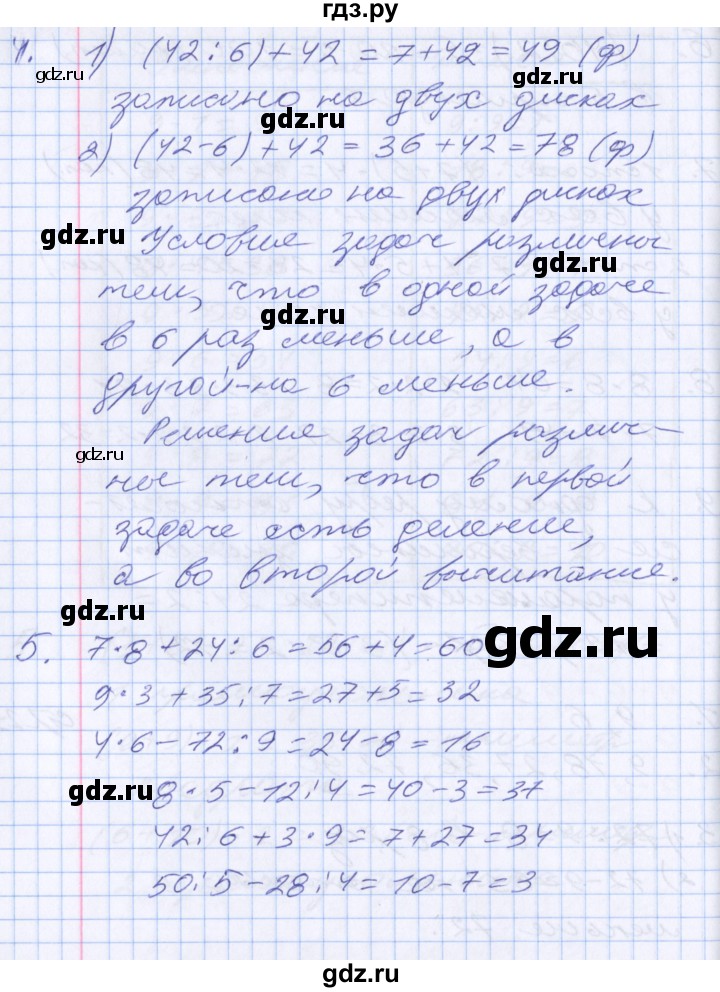 гдз.ру
4. 1) (42:6)+42 = 7+42 = 49 (ф)
записано на двух дисках
2) (42-6)+42 = 36+42 = 78 (ф)
записано на двух дисках
Условия задач различны
тем, что в одной задаче
в 6 раз меньше, а в
другой - на 6 меньше.
Решения задач различ-
ны тем, что в первой
задаче есть деление,
а во второй вычитание.
5. 7·8+24:6=56+4=60
9·3+35:7=27+5=32
4·6-72:9=24-8=16
8·5-12:4=40-3=37
42:6+3·9=7+27=34
50:5-28:4=10-7=3
gdz.ru
gdz.ru
gdz.ru
gdz.ru
gdz.ru
gdz.ru
gdz.ru
gdz.ru
gdz.ru
gdz.ru
gdz.ru
gdz.ru